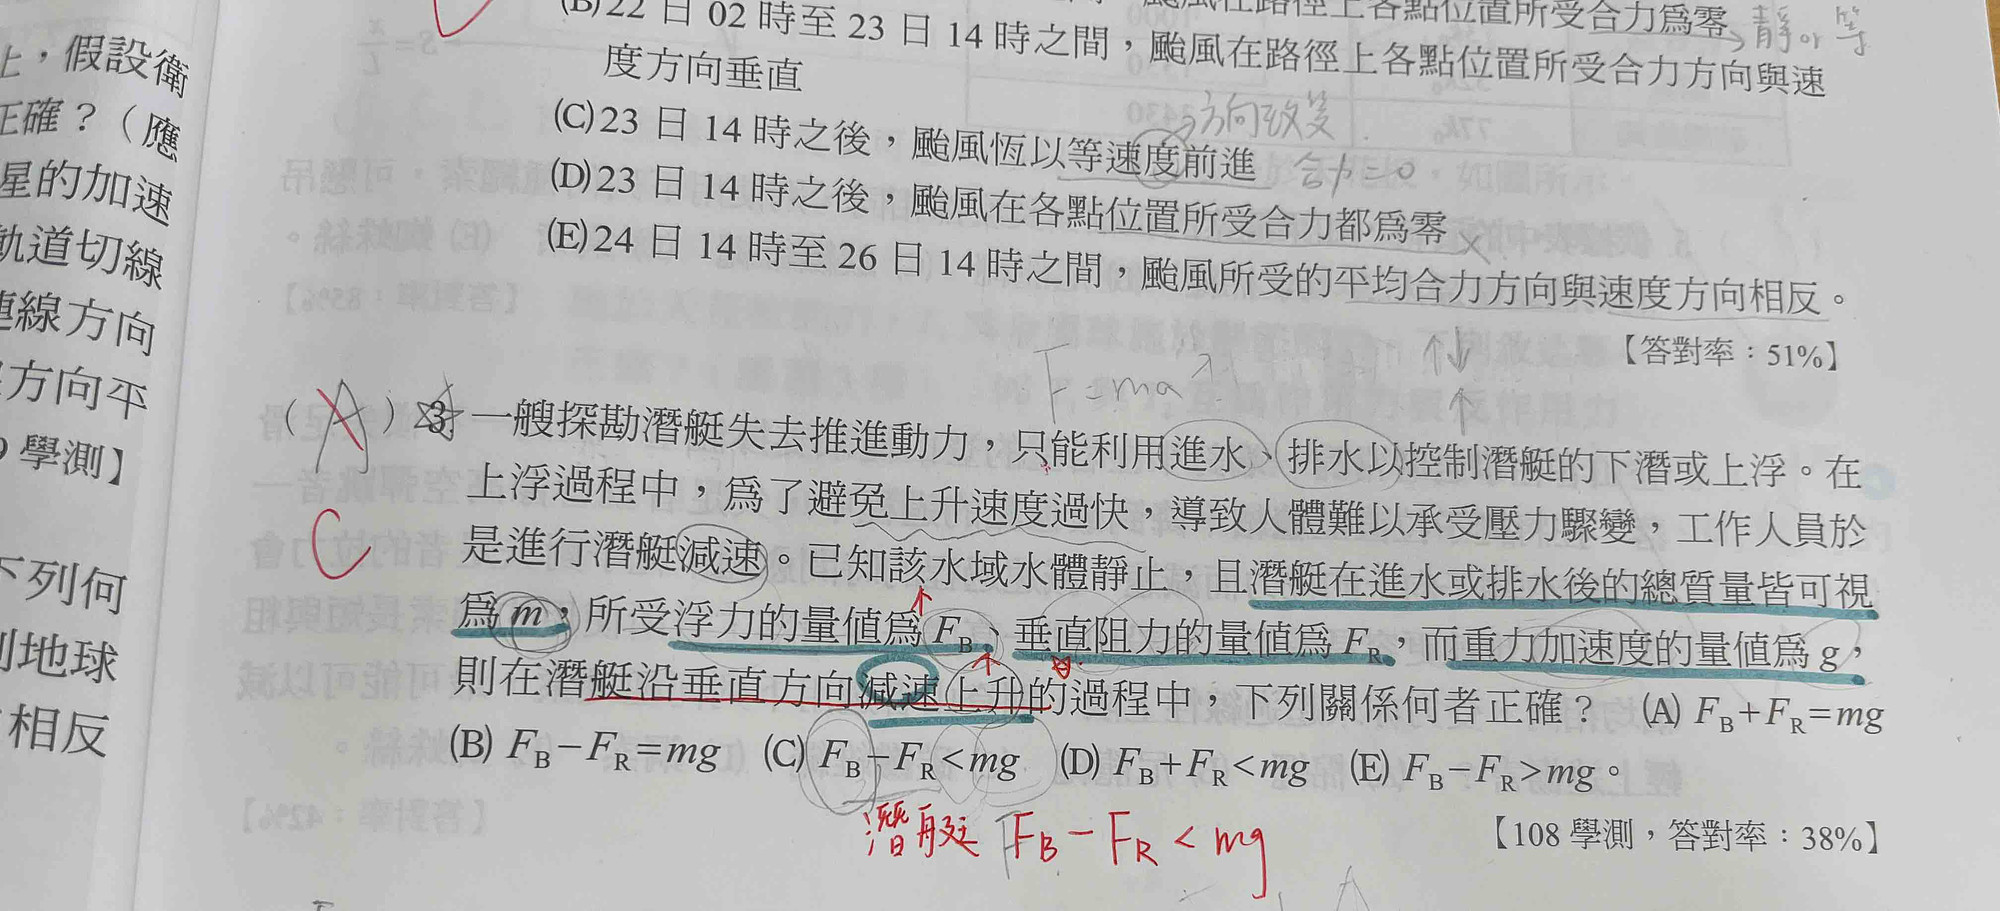 上，假設衛
正確？（應
星的加速
軌道切線
連線方向
方向平
學測】
下列何
地球
相反
(B)22 日 02 時至 23 日 14 時之間，颱風在路徑上各點位置所受合力方向與速
度方向垂直
颱風在路徑上各點位置所受合力爲零
靜 or 等
方向改變
(C)23 日 14 時之後，颱風恆以等速度前進
合力=0
(D)23 日 14 時之後，颱風在各點位置所受合力都爲零
(E)24 日 14 時至 26 日 14 時之間，颱風所受的平均合力方向與速度方向相反。
【答對率：51%】
F=ma
（A）3. 一艘探勘潛艇失去推進動力，只能利用進水、排水以控制潛艇的下潛或上浮。在
上浮過程中，爲了避免上升速度過快，導致人體難以承受壓力驟變，工作人員於
C
是進行潛艇減速。已知該水域水體靜止，且潛艇在進水或排水後的總質量皆可視
爲 m，所受浮力的量值爲 F_B、垂直阻力的量值爲 F_R，而重力加速度的量值爲 g，
則在潛艇沿垂直方向減速上升的過程中，下列關係何者正確？ (A) F_B+F_R=mg
(B) F_B−F_R=mg (C) F_B−F_R<mg (D) F_B+F_R<mg (E) F_B−F_R>mg。
潛艇 F_B − F_R < mg
【108 學測，答對率：38%】